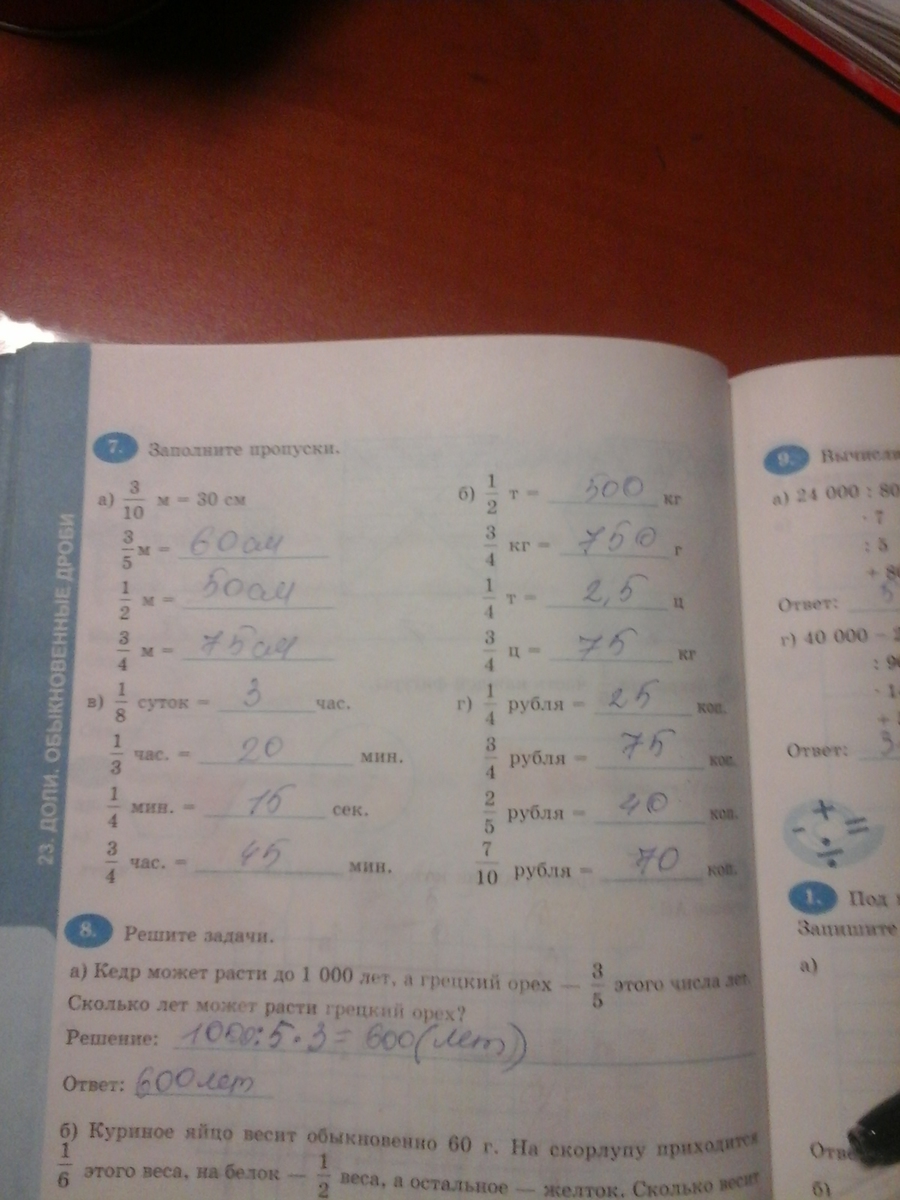 23. ДОЛИ. ОБЫКНОВЕННЫЕ ДРОБИ
7. Заполните пропуски.
а) 3/10 м = 30 см
3/5 м = 60 см
1/2 м = 50 см
3/4 м = 75 см
б) 1/2 т = 500 кг
3/4 кг = 750 г
1/4 т = 2,5 ц
3/4 ц = 75 кг
в) 1/8 суток = 3 час.
1/3 час. = 20 мин.
1/4 мин. = 15 сек.
3/4 час. = 45 мин.
г) 1/4 рубля = 25 коп.
3/4 рубля = 75 коп.
2/5 рубля = 40 коп.
7/10 рубля = 70 коп.
8. Решите задачи.
а) Кедр может расти до 1 000 лет, а грецкий орех — 3/5 этого числа лет.
Сколько лет может расти грецкий орех?
Решение: 1000:5·3=600(лет)
Ответ: 600 лет
б) Куриное яйцо весит обыкновенно 60 г. На скорлупу приходится
1/6 этого веса, на белок — 1/2 веса, а остальное — желток. Сколько весит
9.
а) 24 000 : 80
· 7
: 5
Ответ: 5
г) 40 000 −
Ответ:
+ − = ÷
1. Под
Запишите
а)
б)